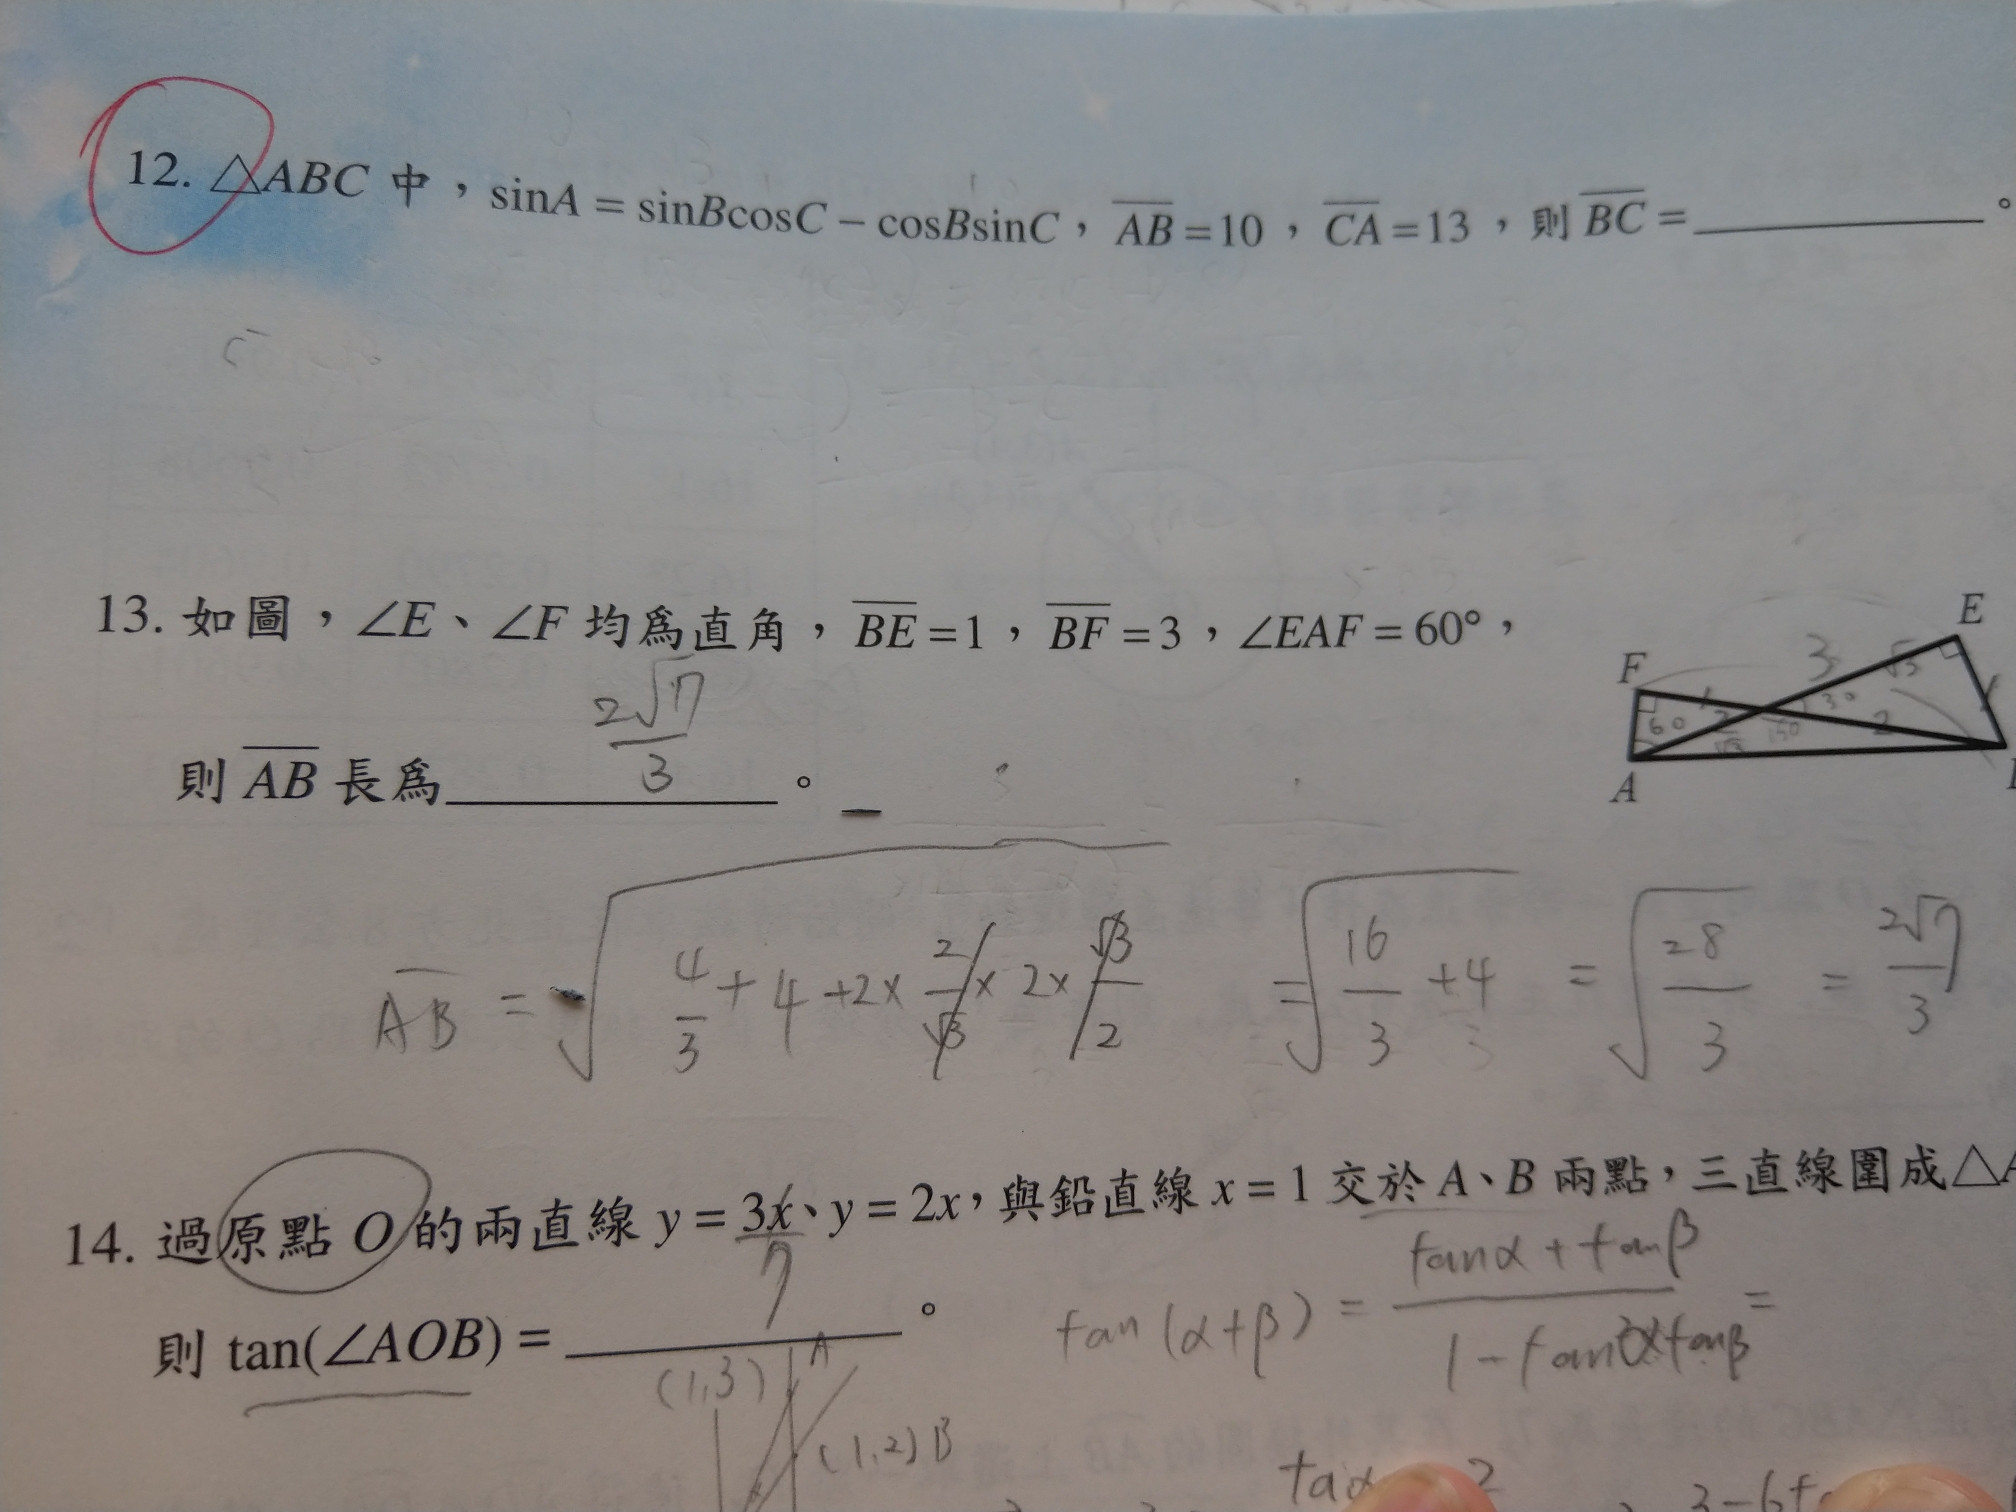 12. △ABC 中，sinA = sinBcosC − cosBsinC，AB = 10，CA = 13，則 BC = ________。
13. 如圖，∠E、∠F 均為直角，BE = 1，BF = 3，∠EAF = 60°，
2√7/3
則 AB 長為________。
E
F
3
√3
1
30
60
2
150
2
A
AB = √(4/3 + 4 + 2× 2/√3 × 2× √3/2) = √(16/3 + 4) = √(28/3) = 2√7/3
14. 過原點 O 的兩直線 y = 3x、y = 2x，與鉛直線 x = 1 交於 A、B 兩點，三直線圍成△A
7
則 tan(∠AOB) = ________。
tan(α+β) = (tanα + tanβ)/(1 − tanαtanβ) =
(1,3) A
(1,2) B